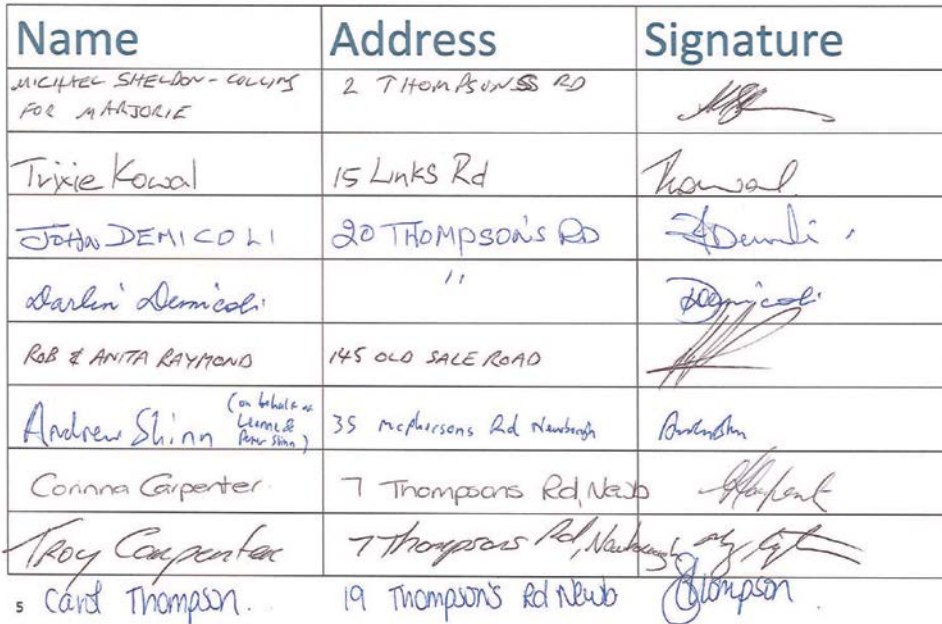 Name Address Signature
MICHAEL SHELDON-COLLINS 2 THOMPSONSS RD
FOR MARJORIE
Trixie Kowal 15 Links Rd TKowal
JOHN DEMICOLI 20 THOMPSON'S RD JDemicoli
Darlin' Demicoli " DDemicoli
ROB & ANITA RAYMOND 145 OLD SALE ROAD
Andrew Shinn (on behalf of Leanne & Peter Shinn) 35 mcphersons Rd Newborough
Corinna Carpenter 7 Thompsons Rd, Newb
Troy Carpenter 7 Thompsons Rd, Newborough
5 Carol Thompson. 19 Thompson's Rd Newb CThompson.